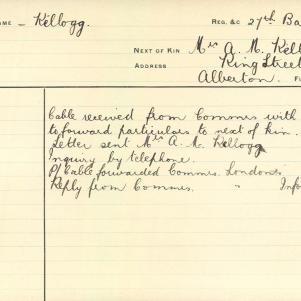 AME – Kellogg.
REG. &C 27th Ba
NEXT OF KIN Mrs A. M. Kell
ADDRESS King Street
Alberton.
Cable received from Commrs with
to forward particulars to next of kin.
Letter sent Mrs A. M. Kellogg
nquiry by telephone.
P/Cable forwarded Commrs. London
Reply from Commrs. " Info